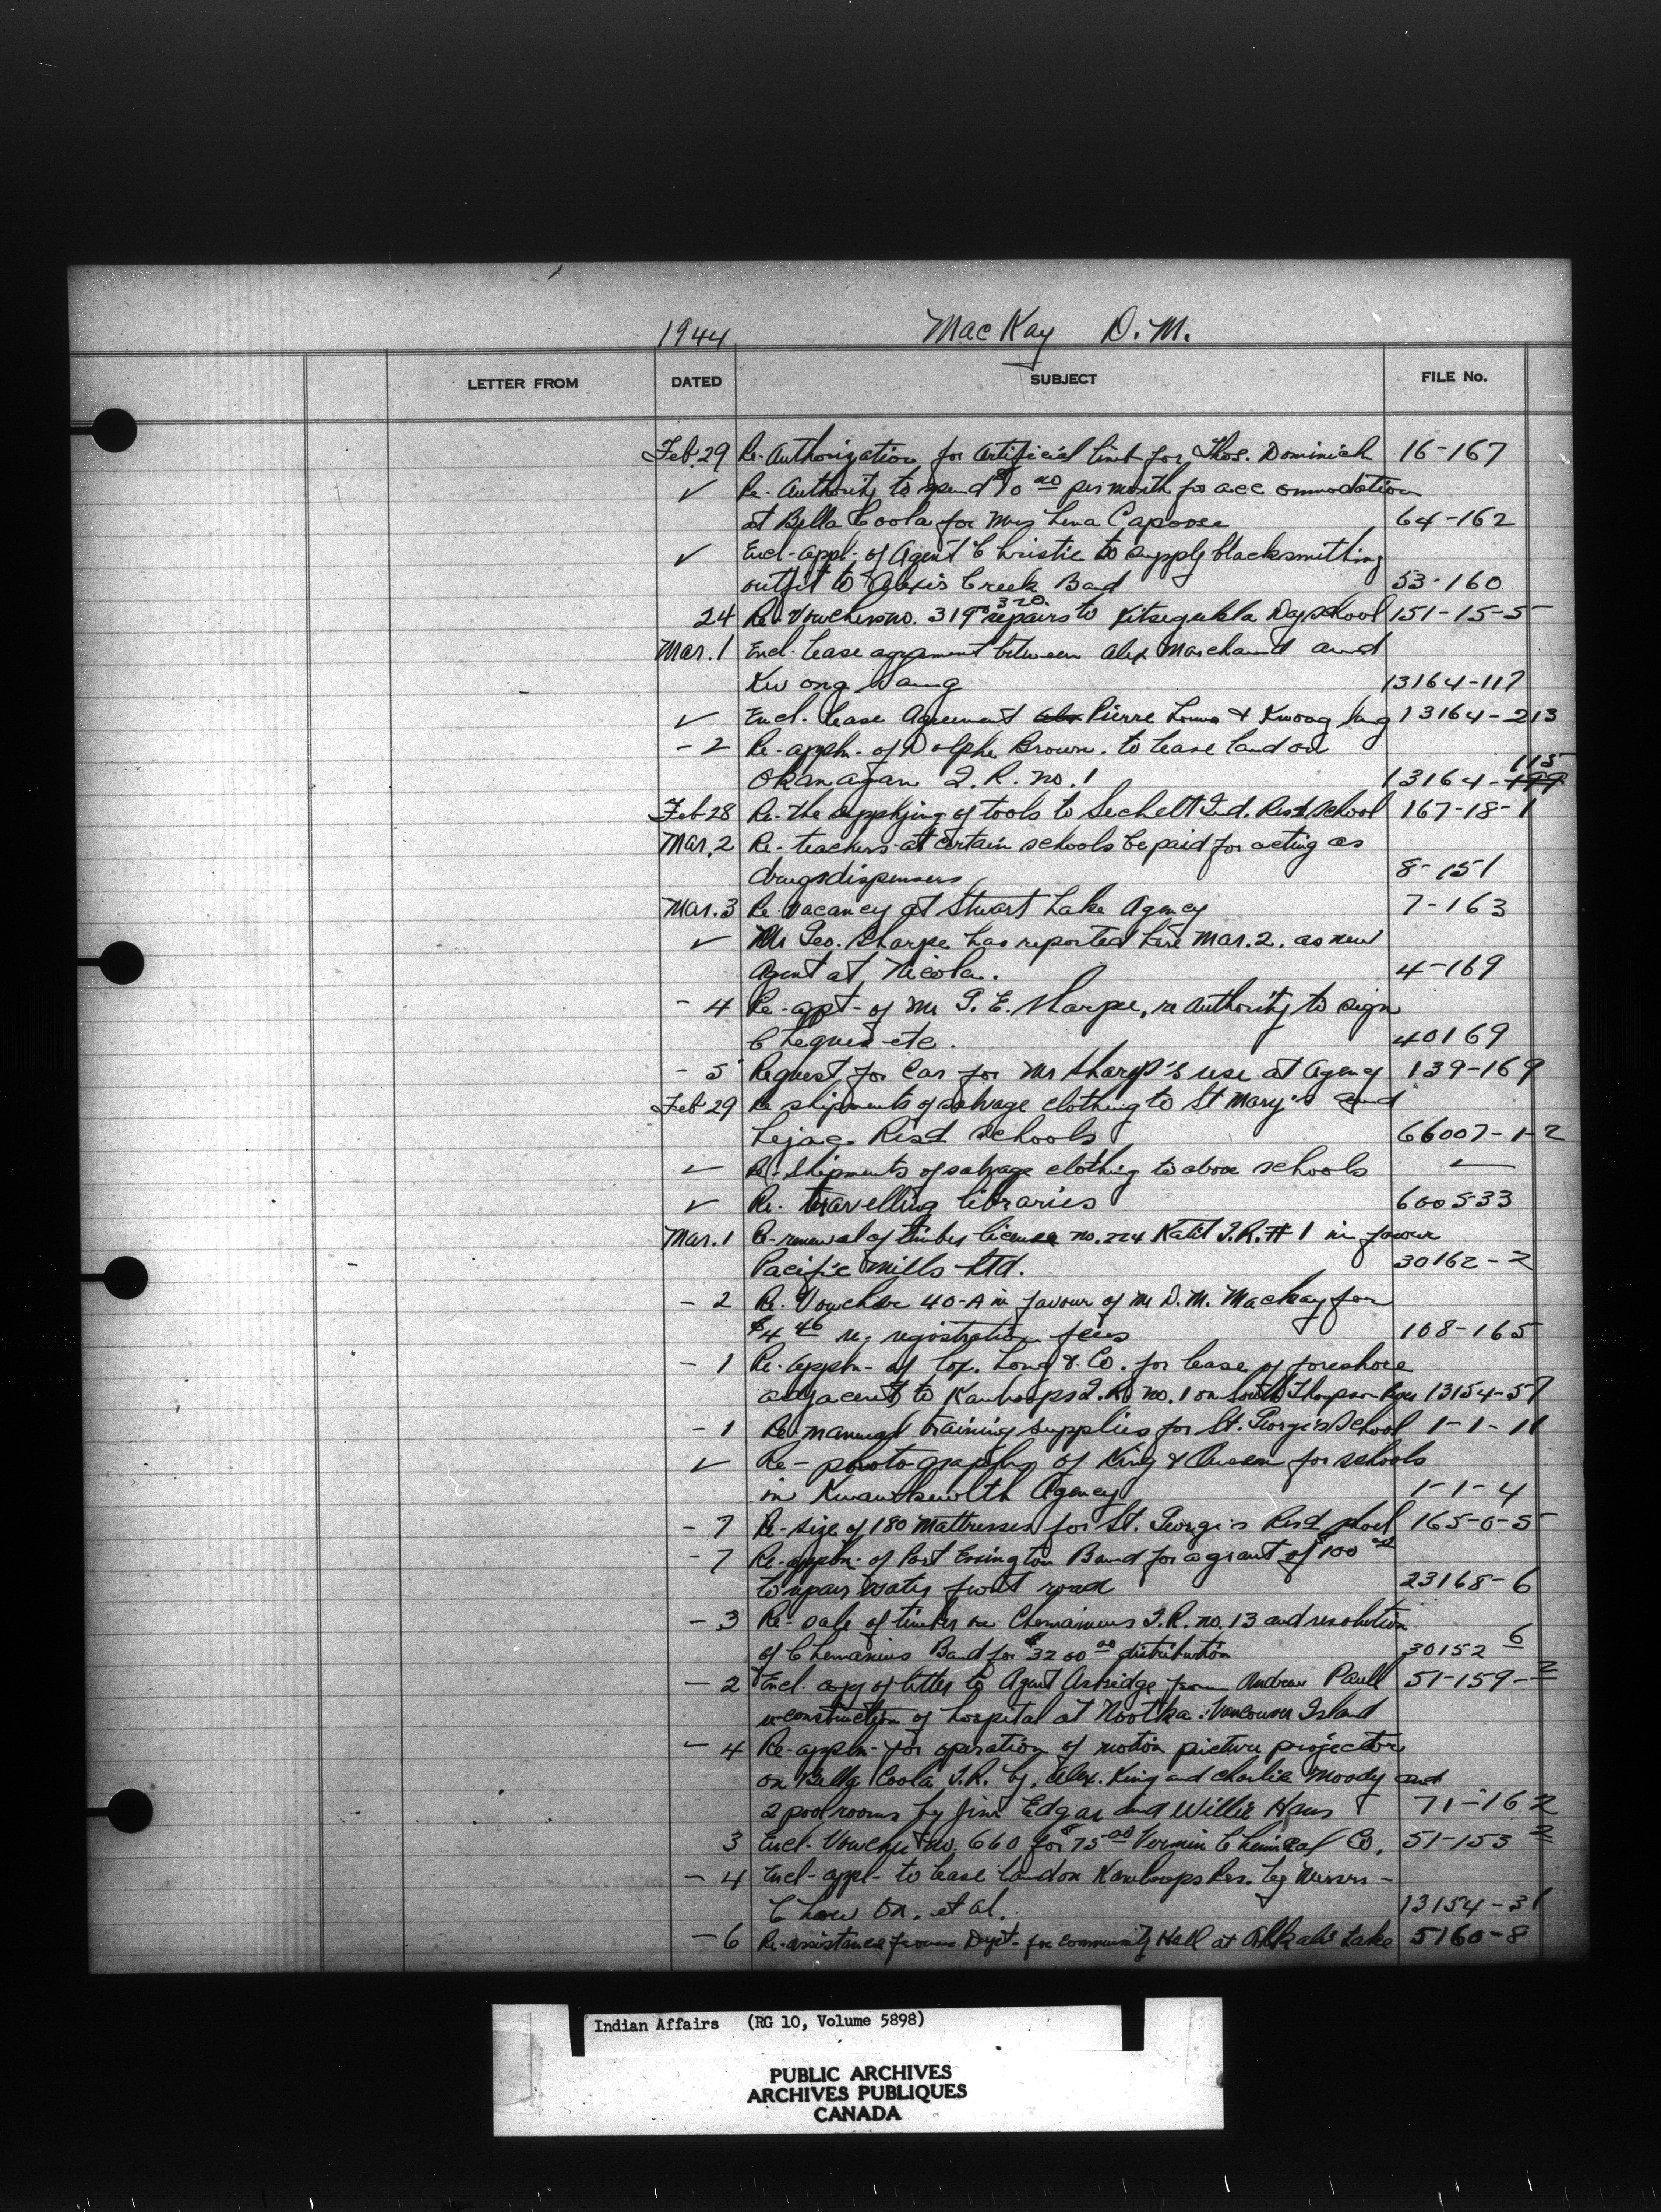 1944 MacKay D. M.
LETTER FROM DATED SUBJECT FILE No.
Feb. 29 Re-Authorization for artificial limb for Thos. Dominick 16-167
✓ Re-Authority to spend $10 00 per month for accommodation
at Bella Coola for Mrs Lena Capoose 64-162
✓ Encl-appl-of Agent Christie to supply blacksmithing
outfit to Alexis Creek Band 53-160
24 Re-Vouchers no. 319 320 repairs to Kitsegukla Day School 151-15-5
Mar. 1 Encl. lease agreement between Alex Marchand and
Kwong Sang 13164-117
✓ Encl. lease Agreement Pierre Louis & Kwong Sang 13164-213
-2 Re-appln-of Dolphe Brown to lease land on
Okanagan I.R. no. 1 13164-199 115
Feb 28 Re-the supplying of tools to Sechelt Ind. Resd School 167-18-1
Mar. 2 Re-teachers at certain schools be paid for acting as
drugs dispensers 8-151
Mar. 3 Re vacancy at Stuart Lake Agency 7-163
✓ Mr Geo. Sharpe has reported here Mar. 2. as new
Agent at Nicola. 4-169
-4 Re-apt-of Mr G. E. Sharpe, re authority to sign
Cheques etc. 40169
-5 Request for Car for Mr Sharp's use at Agency 139-169
Feb 29 Re shipments of salvage clothing to St Mary's and
Lejac-Resd Schools 66007-1-2
✓ Re-Shipments of salvage clothing to above schools ✓
✓ Re. travelling libraries 600533
Mar. 1 Re-renewal of timber license no. 224 Katit I.R. #1 in favour
Pacific Mills Ltd. 30162-2
-2 Re. Voucher 40-A in favour of Mr D. M. MacKay for
$4 46 re. registration fees 108-165
-1 Re-appln-of Cox. Long & Co. for lease of foreshore
adjacent to Kamloops I.R. no. 1 on South Thompson River 13154-57
-1 Re-manual training supplies for St. George's School 1-1-11
✓ Re-photographs of King & Queen for schools
in Kwawkewlth Agency 1-1-4
-7 Re-size of 180 Mattresses for St. George's Resd School 165-0-5
-7 Re-appln-of Port Essington Band for a grant of 100 00
to repair water front road 23168-6
-3 Re-sale of timber on Chemainus I.R. no. 13 and resolution
of Chemainus Band for $3200 00 distribution 30152 6
-2 Encl. copy of letter to Agent Ashbridge from Andrew Paull 51-159-2
re-construction of hospital at Nootka. Vancouver Island
-4 Re-appln-for operation of motion picture projector
on Bella Coola I.R. by, Alex. King and Charlie Moody and
2 pool rooms by Jim Edgar and Willie Hans 71-162
3 Encl. Voucher no. 660 for $75 00 Vermin Chemical Co. 51-153 2
-4 Encl-appl-to lease land on Kamloops Res. by Messrs-
Chow On, et al. 13154-31
-6 Re-assistance from Dept-for community Hall at Alkali Lake 5160-8
Indian Affairs (RG 10, Volume 5898)
PUBLIC ARCHIVES
ARCHIVES PUBLIQUES
CANADA